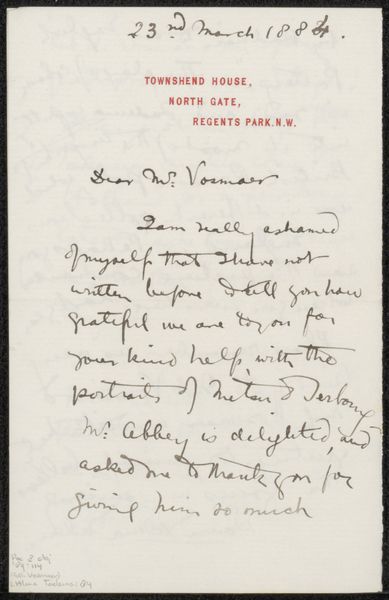 23rd March 1884.
TOWNSHEND HOUSE,
NORTH GATE,
REGENTS PARK.N.W.
Dear Mr. Vosmaer
I am really ashamed
of myself that I have not
written before to tell you how
grateful we are to you for
your kind help, with the
portraits of Metsu & Terbourg
Mr. Abbey is delighted, and
asked me to thank you for
giving him so much